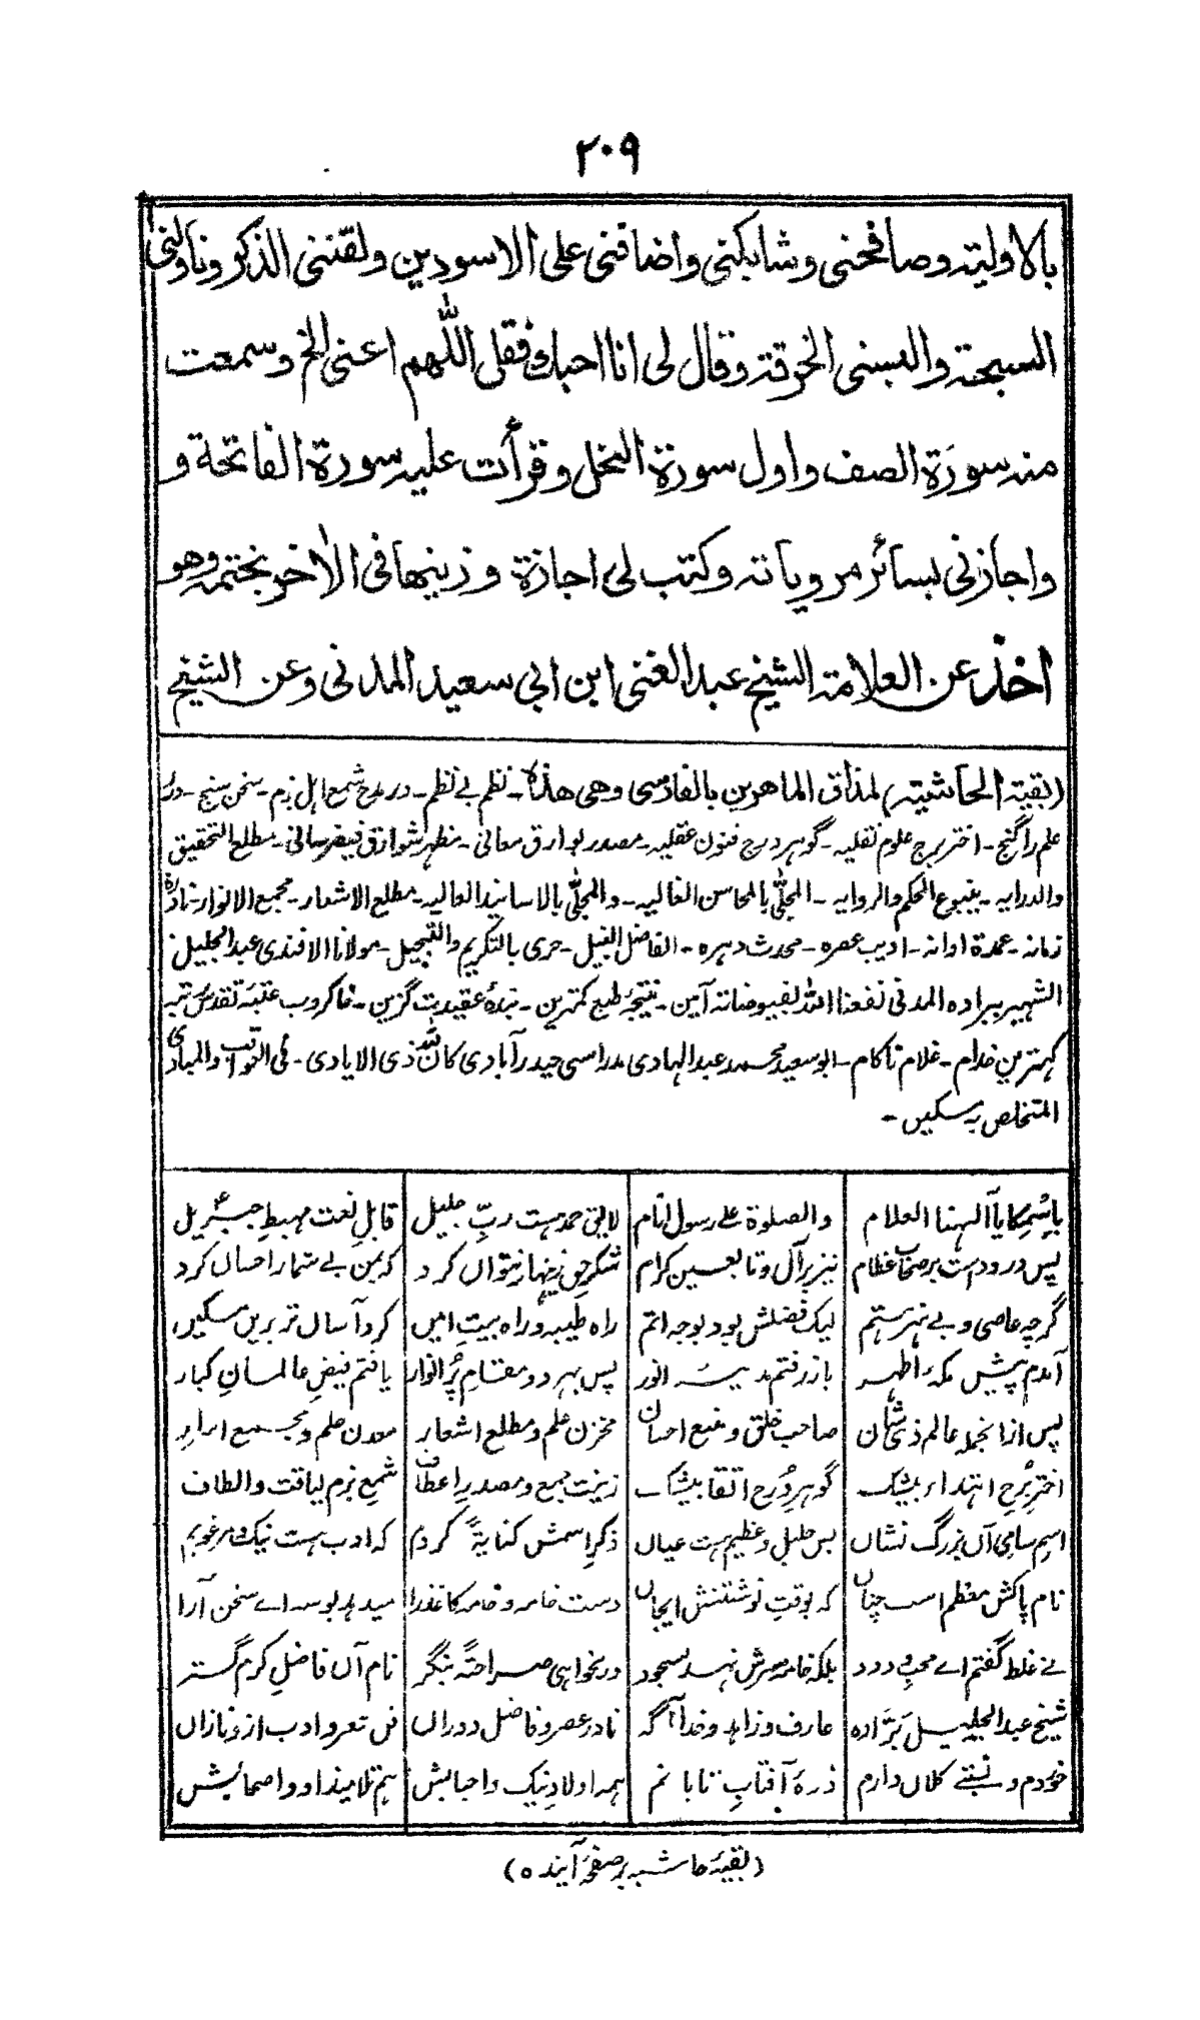 ۲۰۹
بالاولیة وصافحنی وشابکنی واضافنی علی الاسودین ولقننی الذکر وناولنی
السبحة والبسنی الخرقة وقال لی انا احبک فقل اللّٰهم اعنی الخ وسمعت
منه سورة الصف واول سورة النحل وقرأت علیه سورة الفاتحة و
واجازنی بسائر مرویاته وکتب لی اجازة وزینها فی الاٰخر بختمه وهو
اخذ عن العلامة الشیخ عبد الغنی ابن ابی سعید المدنی وعن الشیخ
(بقیة الحاشیة) لمذاق الماهرین بالفارسی وهی هذه۔ نظم بے نظم۔ در مدح شمع اہل بزم۔ سخن سنج۔ در
علم را گنج۔ اختر برج علوم نقلیہ۔ گوہر درج فنون عقلیہ۔ مصدر بوارق معانی۔ مظہر شوارق فیض رسانی۔ مطلع التحقیق
والدرایہ۔ ینبوع الحکم والروایہ۔ المحلّٰی بالمحاسن الغالیہ۔ والمجلّٰی بالاسانید العالیہ۔ مطلع الاشعار۔ مجمع الانوار۔ نادرۂ
زمانہ۔ عمدۃ اوانہ۔ ادیب عصرہ۔ محدث دہرہ۔ الفاضل النبیل۔ حری بالتکریم والتبجیل۔ مولانا الافندی عبد الجلیل
الشہیر ببرادہ المدنی نفعنا اللہ بفیوضاتہ آمین۔ نتیجۂ طبع کمترین۔ بندۂ عقیدت گزین۔ خاکروب عتبۂ تقدس رتبہ
کہترین خدام۔ غلام ناکام۔ ابو سعید محمد عبد الہادی مدراسی حیدرآبادی کان اللّٰہ ذی الایادی۔ فی العواقب والمبادی
المتخلص بہ مسکیں۔
باسْمِکَ یا آلہنا العلام والصلوۃ علے رسول انام لایق حمد ہست ربِّ جلیل قابلِ نعت مہبطِ جبرئیل
پس درود ہست بر صحاب عظام نیز بر آل و تابعین کرام شکر حق زینہار نتواں کرد کہ بمن بے شمار احساں کرد
گرچہ عاصی و بے ہنر ہستم لیک فضلش بود بوجہ اتم راہ طیبہ و راہ بیت امیں کرد آساں تر بریں مسکیں
آمدم پیش مکۂ اطہر باز رفتم مدینۂ انور پس بہر دو مقامِ پُر انوار یافتم فیضِ عالمانِ کبار
پس ازانجملہ عالم ذی شان صاحب خلق و منبع احسان مخزن علم و مطلع اشعار معدن حلم و مجمع اسرار
اختر برج اہتداء بیشک گوہر دُرج اتقا بیشک زینت جمع و مصدرِ اعطاف شمعِ بزم لیاقت و الطاف
اسم سامی آں بزرگ نشاں بس جلیل و عظیم ہست عیاں ذکرِ اسمش کنایۃً کردم کہ ادب ہست نیک و مرغوبم
نام پاکش معظم است چناں کہ بوقتِ نوشتنش ایجاں دست خامہ و خامہ کاغذ را میدہد بوسہ اے سخن آرا
نے غلط گفتم اے محبِ ودود بلکہ خامہ سرش نہد بسجود در نخواہی صراحتہً بنگر نام آں فاضلِ کرم گستر
شیخ عبد الجلیل برّادہ عارف و زاہد و خدا آگہ نادر عصر و فاضل دوراں فن شعر و ادب ازو نازاں
خوردم و نسبتے کلاں دارم ذرۂ آفتابِ تابانم ہمہ اولادِ نیک و احبابش ہم تلامیذ او و اصحابش
(بقیہ حاشیہ بر صفحۂ آیندہ)